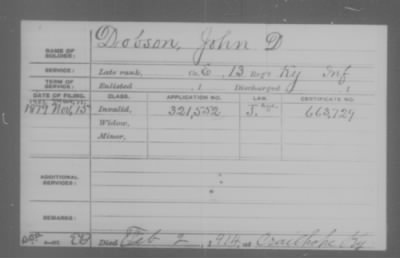 Dobson, John D
NAME OF
SOLDIER:
SERVICE:
Late rank, Co. C, 13 Reg't Ky Inf
TERM OF
SERVICE:
Enlisted , 1 Discharged , 1
DATE OF FILING. CLASS. APPLICATION NO. LAW. CERTIFICATE NO.
1879 Nov, 15 Invalid, 321,552 663,729
Widow,
Minor,
ADDITIONAL
SERVICES:
REMARKS:
Died Feb 2, 1914, at Crailhope Ky